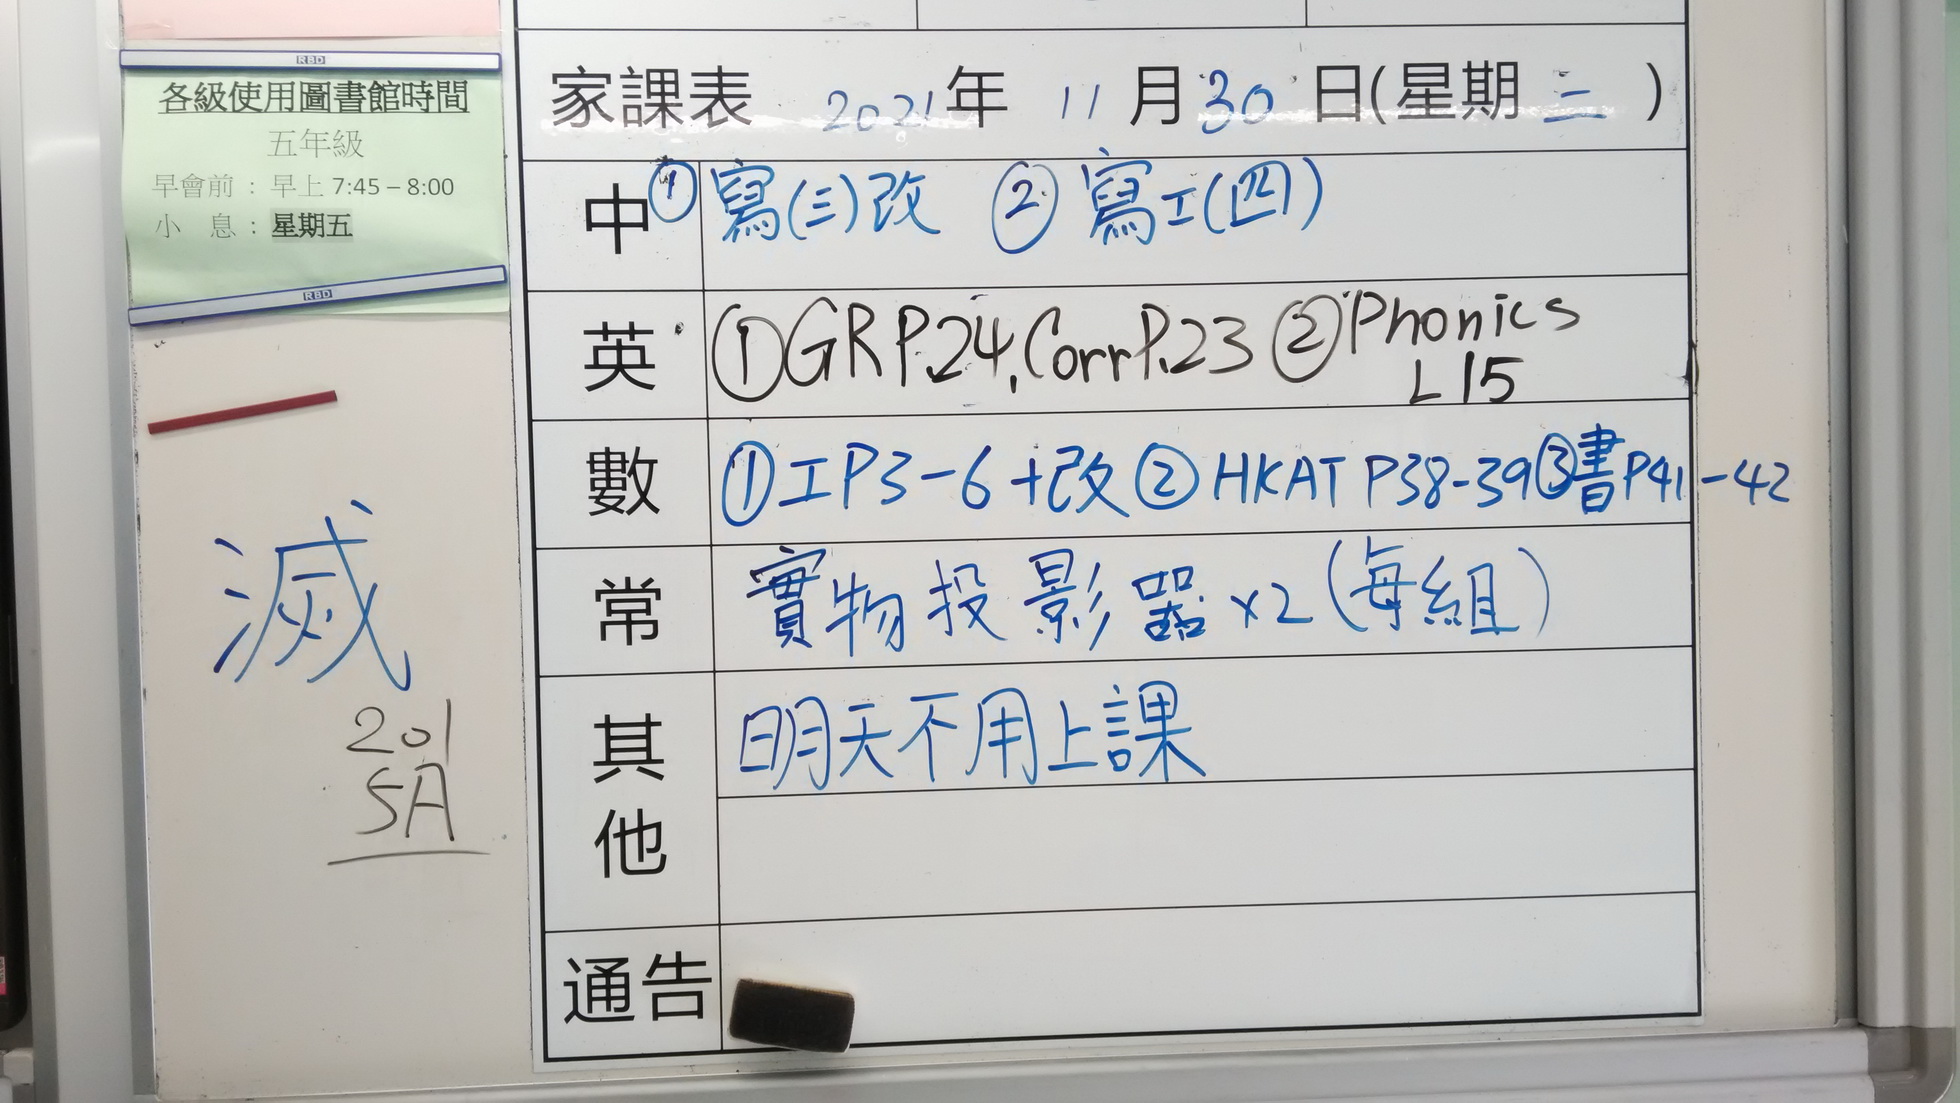 RBD
各級使用圖書館時間
五年級
早會前：早上 7:45 – 8:00
小　息：星期五
RBD
滅
201
5A
家課表 2021年 11月30日(星期二)
中 ①寫(三)改 ②寫工(四)
英 ①GR P.24, Corr P.23 ②Phonics
L15
數 ①工P3-6+改 ②HKAT P38-39 ③書P41-42
常 實物投影器x2(每組)
其他 明天不用上課
通告